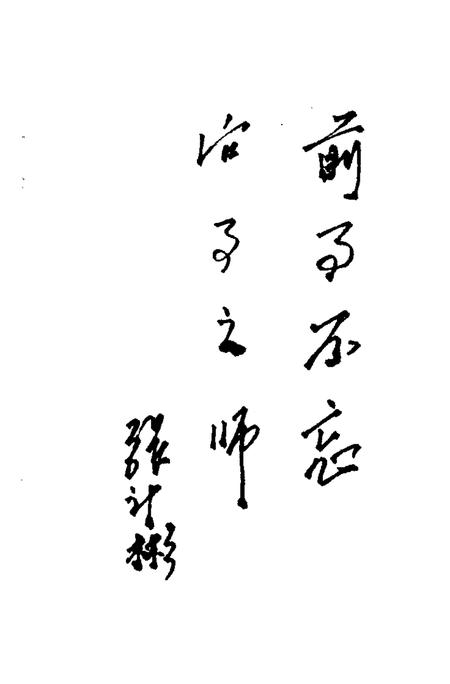 前事不忘
後事之师
張计彬